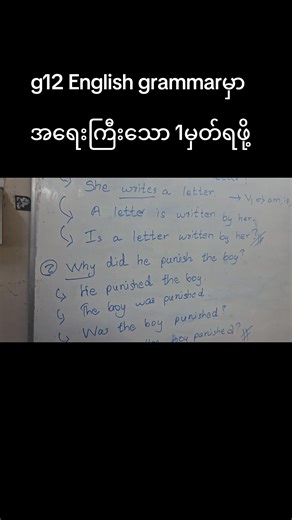 g12 English grammarမှာ
အရေးကြီးသော 1မှတ်ရဖို့
She writes a letter
A letter is written by her.
Is a letter written by her?
② Why did he punish the boy?
He punished the boy.
The boy was punished.
Was the boy punished?
the boy punished?